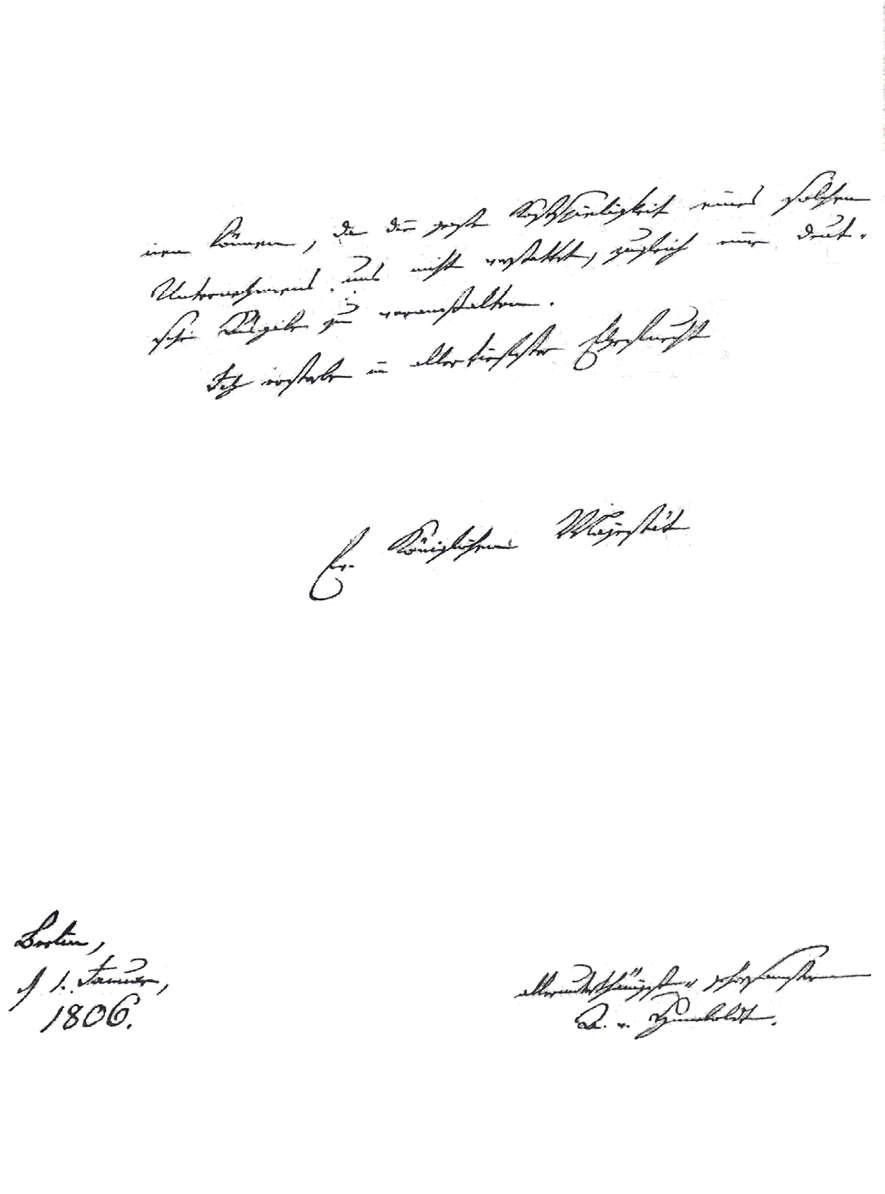 nen können, da die große Kostspieligkeit eines solchen
Unternehmens uns nicht verstattet, zugleich eine deut-
sche Ausgabe zu veranstalten.
Ich ersterbe in allertiefster Ehrfurcht
Ew. Königlichen Majestät
Berlin,
d 1. Januar,
1806.
allerunterthänigst
A. v. Humboldt.